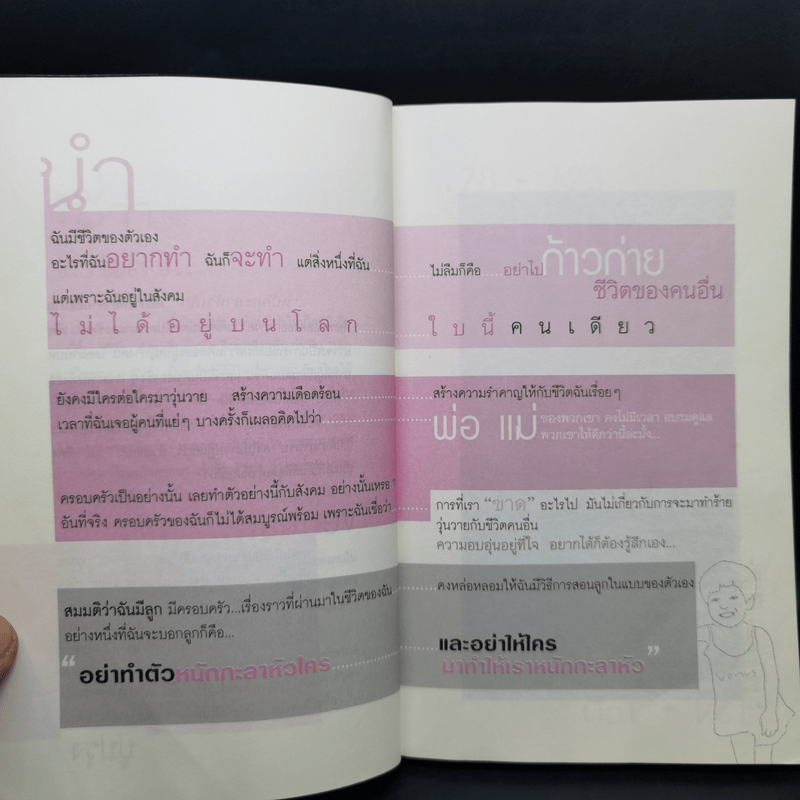 นำ
ฉันมีชีวิตของตัวเอง
อะไรที่ฉันอยากทำ ฉันก็จะทำ แต่สิ่งหนึ่งที่ฉัน........ไม่ลืมก็คือ.....อย่าไปก้าวก่าย
ชีวิตของคนอื่น
แต่เพราะฉันอยู่ในสังคม
ไม่ได้อยู่บนโลก........ใบนี้คนเดียว
ยังคงมีใครต่อใครมาวุ่นวาย สร้างความเดือดร้อน........สร้างความรำคาญให้กับชีวิตฉันเรื่อยๆ
เวลาที่ฉันเจอผู้คนที่แย่ๆ บางครั้งก็เผลอคิดไปว่า........พ่อ แม่ ของพวกเขา คงไม่มีเวลา อบรมดูแล
พวกเขาให้ดีกว่านี้ล่ะมั้ง...
ครอบครัวเป็นอย่างนั้น เลยทำตัวอย่างนี้กับสังคม อย่างนั้นเหรอ
อันที่จริง ครอบครัวของฉันก็ไม่ได้สมบูรณ์พร้อม เพราะฉันเชื่อว่า....การที่เรา "ขาด" อะไรไป มันไม่เกี่ยวกับการจะมาทำร้าย
วุ่นวายกับชีวิตคนอื่น
ความอบอุ่นอยู่ที่ใจ อยากได้ก็ต้องรู้สึกเอง...
สมมติว่าฉันมีลูก มีครอบครัว...เรื่องราวที่ผ่านมาในชีวิตของฉัน....คงหล่อหลอมให้ฉันมีวิธีการสอนลูกในแบบของตัวเอง
อย่างหนึ่งที่ฉันจะบอกลูกก็คือ...
"อย่าทำตัวหนักกะลาหัวใคร........และอย่าให้ใคร
มาทำให้เราหนักกะลาหัว"